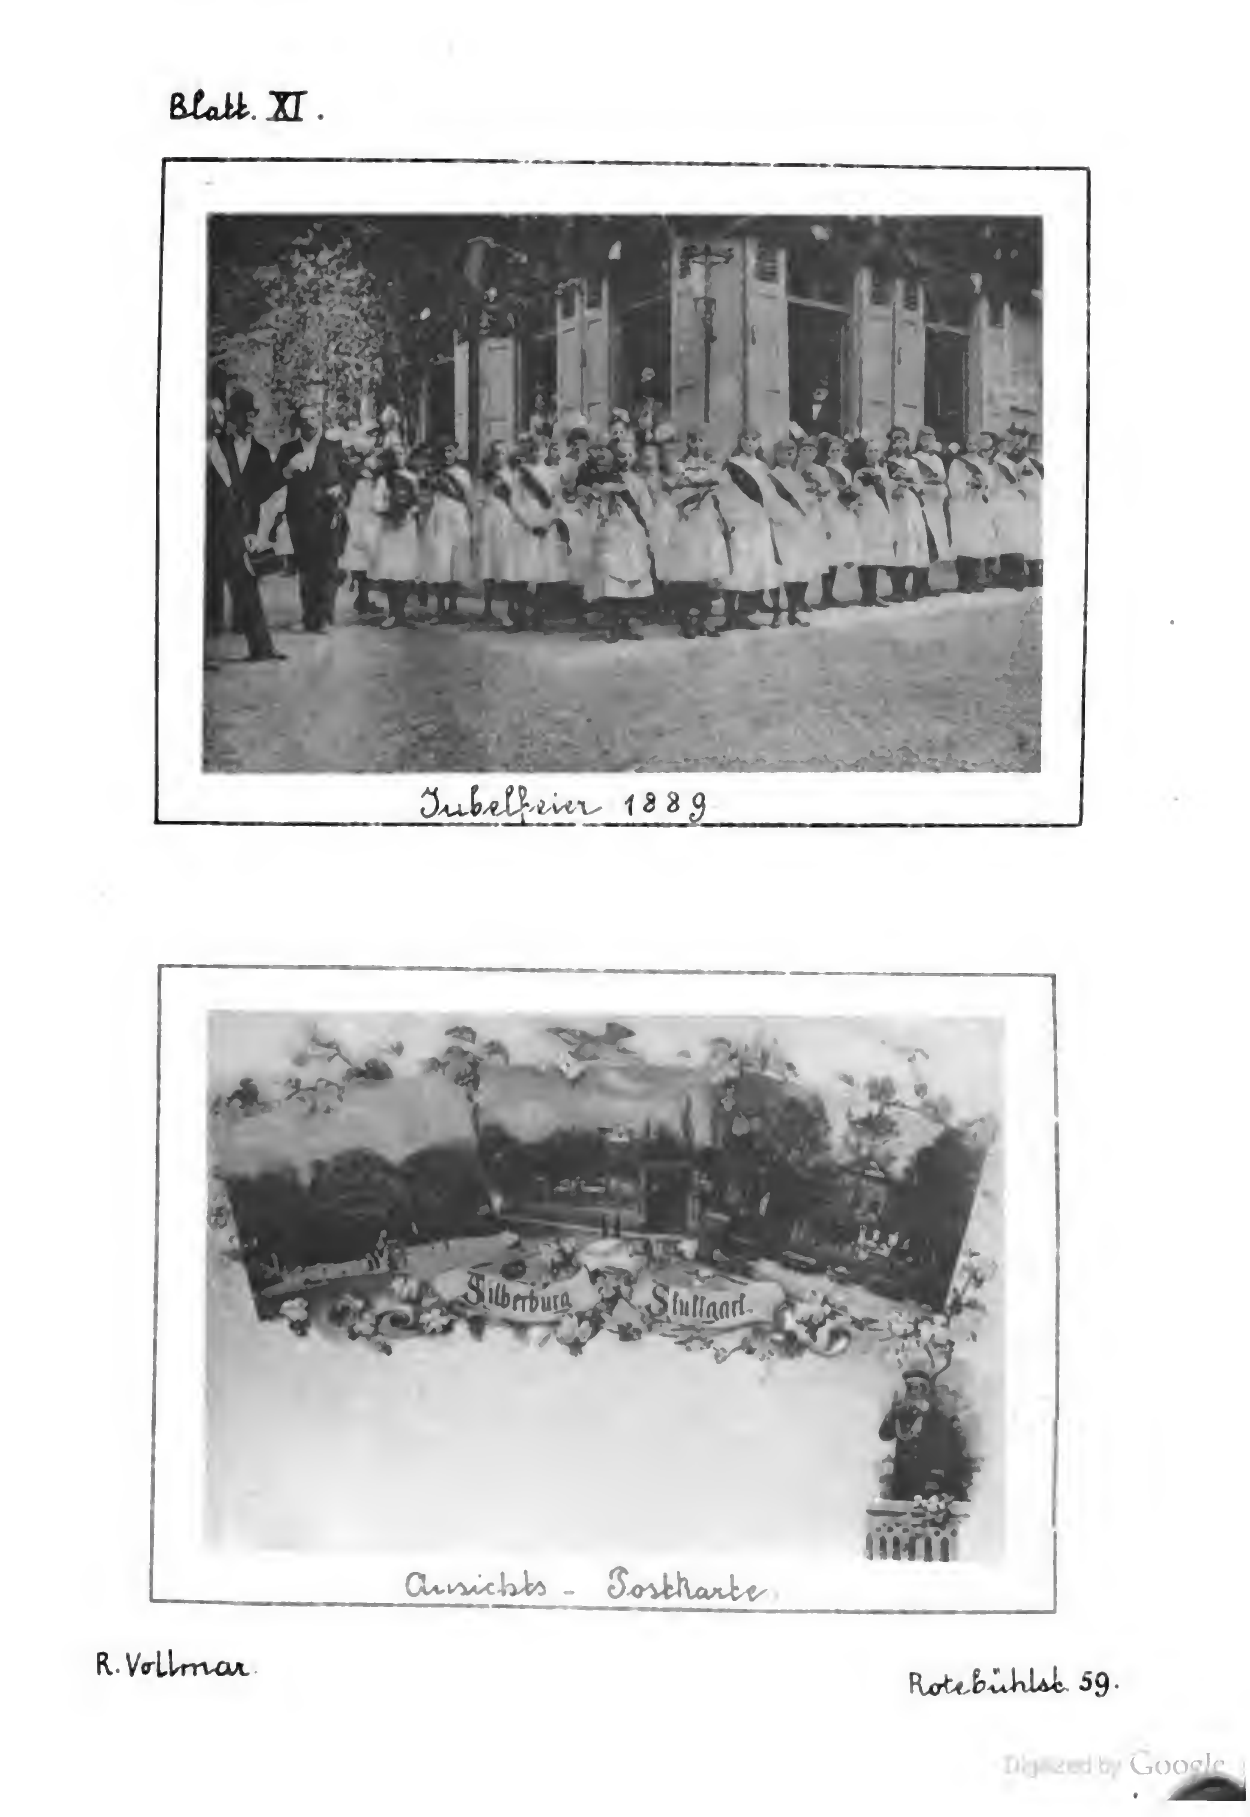 Blatt. XI.
Jubelfeier 1889
Silberburg Stuttgart.
Ansichts - Postkarte.
R. Vollmar.
Rotebühlst. 59.
Digitized by Google